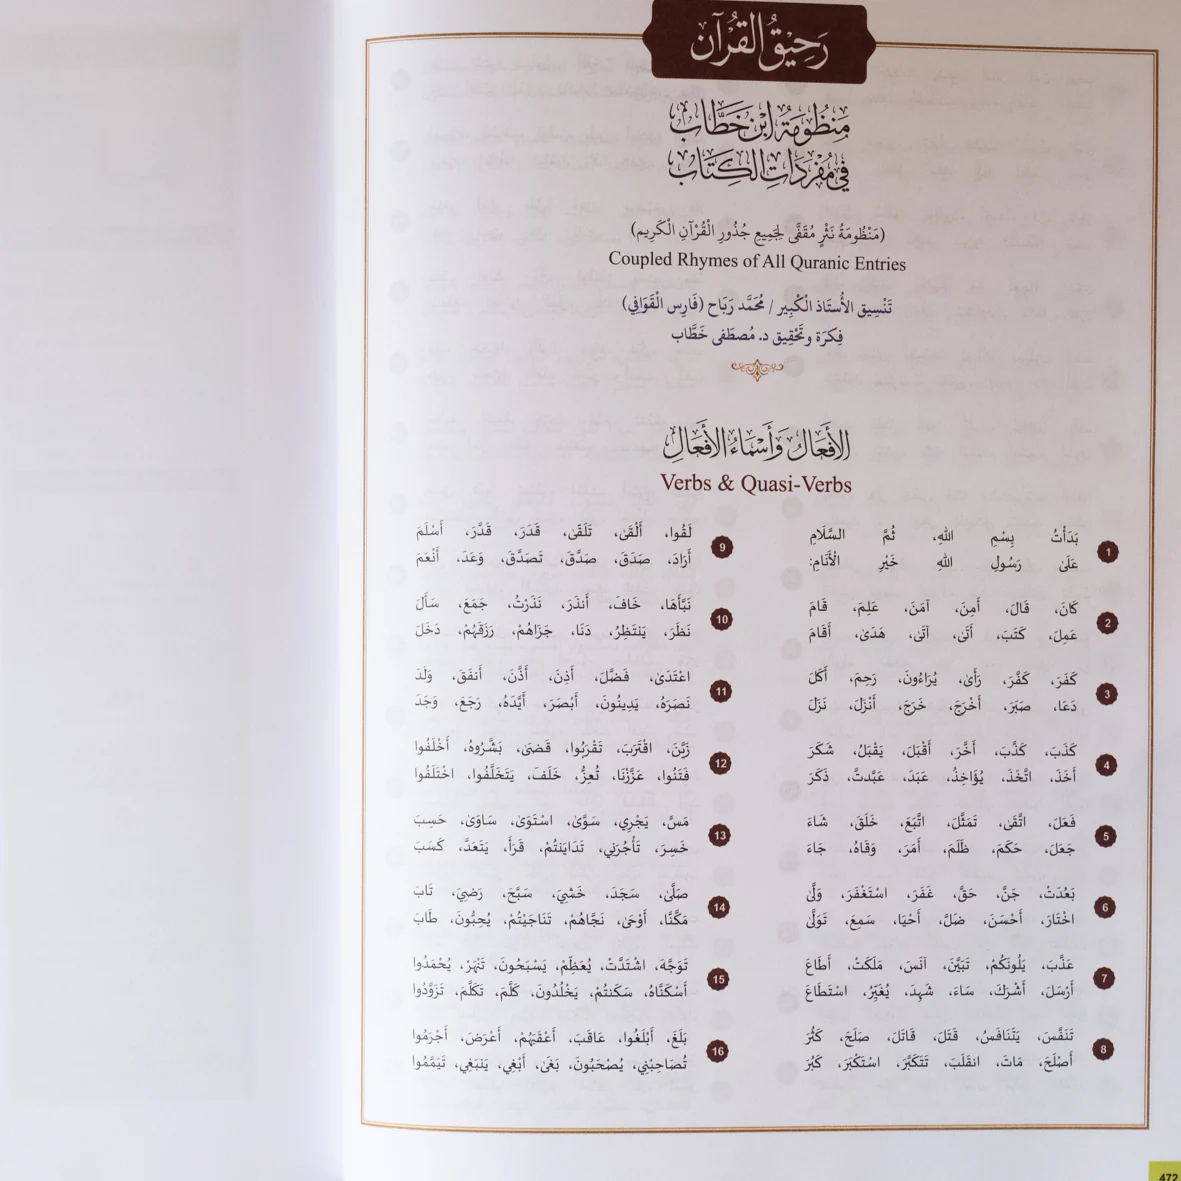 رَحِيقُ الْقُرْآن
مَنظُومَةُ ابْنِ خَطَّابِ
فِي مُفْرَدَاتِ الْكِتَابِ
(مَنْظُومَةُ نَثْرٍ مُقَفًّى لِجَمِيعِ جُذُورِ الْقُرْآنِ الْكَرِيم)
Coupled Rhymes of All Quranic Entries
تَنْسِيق الأُسْتَاذ الْكَبِير / مُحَمَّد رَبَاح (فَارِس الْقَوَافِي)
فِكرَة وتَحْقِيق د. مُصطَفى خَطَّاب
الأَفْعَالُ وَأَسْمَاءُ الأَفْعَالِ
Verbs & Quasi-Verbs
1
بَدَأْتُ بِسْمِ اللهِ، ثُمَّ السَّلَامِ
عَلَىٰ رَسُولِ اللهِ خَيْرِ الْأَنَامِ:
2
كَانَ، قَالَ، أَمِنَ، آمَنَ، عَلِمَ، قَامَ
عَمِلَ، كَتَبَ، أَتَىٰ، آتَىٰ، هَدَىٰ، أَقَامَ
3
كَفَرَ، كَفَّرَ، رَأَىٰ، يُرَاءُونَ، رَحِمَ، أَكَلَ
دَعَا، صَبَرَ، أَخْرَجَ، خَرَجَ، أَنْزَلَ، نَزَلَ
4
كَذَبَ، كَذَّبَ، أَخَّرَ، أَقْبَلَ، يَقْبَلُ، شَكَرَ
أَخَذَ، اتَّخَذَ، يُؤَاخِذُ، عَبَدَ، عَبَّدتَّ، ذَكَرَ
5
فَعَلَ، اتَّقَىٰ، تَمَثَّلَ، اتَّبَعَ، خَلَقَ، شَاءَ
جَعَلَ، حَكَمَ، ظَلَمَ، أَمَرَ، وَقَاهُ، جَاءَ
6
بَعُدَتْ، جَنَّ، حَقَّ، غَفَرَ، اسْتَغْفَرَ، وَلَّىٰ
اخْتَارَ، أَحْسَنَ، ضَلَّ، أَحْيَا، سَمِعَ، تَوَلَّىٰ
7
عَذَّبَ، يَلُونَكُمْ، تَبَيَّنَ، آنَسَ، مَلَكَتْ، أَطَاعَ
أَرْسَلَ، أَشْرَكَ، سَاءَ، شَهِدَ، يُغَيِّرُ، اسْتَطَاعَ
8
تَنَفَّسَ، يَتَنَافَسُ، قَتَلَ، قَاتَلَ، صَلَحَ، كَثُرَ
أَصْلَحَ، مَاتَ، انقَلَبَ، تَتَكَبَّرَ، اسْتَكْبَرَ، كَبُرَ
9
لَقُوا، أَلْقَىٰ، تَلَقَّىٰ، قَدَرَ، قَدَّرَ، أَسْلَمَ
أَرَادَ، صَدَقَ، صَدَّقَ، تَصَدَّقَ، وَعَدَ، أَنْعَمَ
10
نَبَّأَهَا، خَافَ، أَنذَرَ، نَذَرْتُ، جَمَعَ، سَأَلَ
نَظَرَ، يَنتَظِرُ، دَنَا، جَزَاهُمْ، رَزَقَهُمْ، دَخَلَ
11
اعْتَدَىٰ، فَضَّلَ، أَذِنَ، أَذَّنَ، أَنفَقَ، وَلَدَ
نَصَرَهُ، يَدِينُونَ، أَبْصَرَ، أَيَّدَهُ، رَجَعَ، وَجَدَ
12
زَيَّنَ، اقْتَرَبَ، تَقْرَبُوا، قَضَىٰ، بَشَّرُوهُ، أَخْلَفُوا
فَتَنُوا، عَزَّزْنَا، تُعِزُّ، خَلَفَ، يَتَخَلَّفُوا، اخْتَلَفُوا
13
مَسَّ، يَجْرِي، سَوَّىٰ، اسْتَوَىٰ، سَاوَىٰ، حَسِبَ
خَسِرَ، تَأْجُرَنِي، تَدَايَنتُمْ، قَرَأَ، يَتَعَدَّ، كَسَبَ
14
صَلَّىٰ، سَجَدَ، خَشِيَ، سَبَّحَ، رَضِيَ، تَابَ
مَكَّنَّا، أَوْحَىٰ، نَجَّاهُمْ، تَنَاجَيْتُمْ، يُحِبُّونَ، طَابَ
15
تَوَجَّهَ، اشْتَدَّتْ، يُعَظِّمْ، يَسْبَحُونَ، تَنْهَرْ، يُحْمَدُوا
أَسْكَنَّاهُ، سَكَنتُمْ، يَخْلُدُونَ، كَلَّمَ، تَكَلَّمَ، تَزَوَّدُوا
16
بَلَغَ، أَبْلَغُوا، عَاقَبَ، أَعْقَبَهُمْ، أَعْرَضَ، أَجْرَمُوا
تُصَاحِبْنِي، يُصْحَبُونَ، بَغَىٰ، أَبْغِي، يَنبَغِي، تَيَمَّمُوا
472